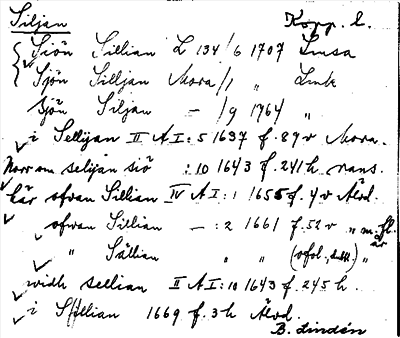 Siljan Kopp. l.
Siön Sillian L 134/6 1707 Limsa
Sjön Silljan Mora/1 " Link
Sjön Siljan — /9 1764 "
i Sellijan II A I: 5 1637 f. 89 v Mora.
Norr om selijan siö :10 1643 f. 241 h räns.
här ofvan Sillian IV A I: 1 1655 f. 4 v Älvd.
ofvan Sillian — : 2 1661 f. 52 v " m. fl. är
" Sällian " " (ofol., ) "
widh sellian II A I: 10 1643 f. 245 h.
i Sillian 1669 f. 3 h Älvd.
B. Lindén